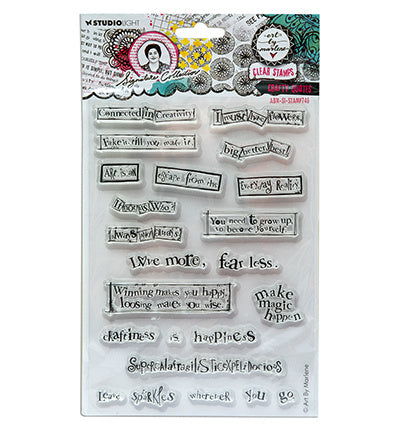 STUDIOLIGHT
art by marlene
Signature Collection
CLEAR STAMPS
CRAFTY QUOTES
ABM-SI-STAMP740
Connected in Creativity!
I must have flowers.
Fake it till you make it.
big better best!
Art is an
escape from the
Everyday Reality
You need to grow up,
to become yourself.
Love more, fear less.
Winning makes you happy,
loosing makes you wise.
make
magic
happen
craftiness is happiness
leave sparkles wherever you go
© Art By Marlene